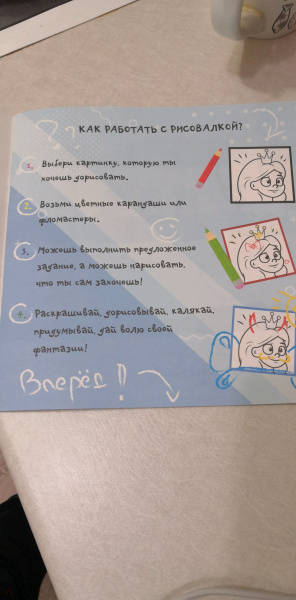 КАК РАБОТАТЬ С РИСОВАЛКОЙ?
1. Выбери картинку, которую ты
хочешь дорисовать.
2. Возьми цветные карандаши или
фломастеры.
3. Можешь выполнить предложенное
задание, а можешь нарисовать,
что ты сам захочешь!
4. Раскрашивай, дорисовывай, калякай,
придумывай, дай волю своей
фантазии!
Вперёд!!